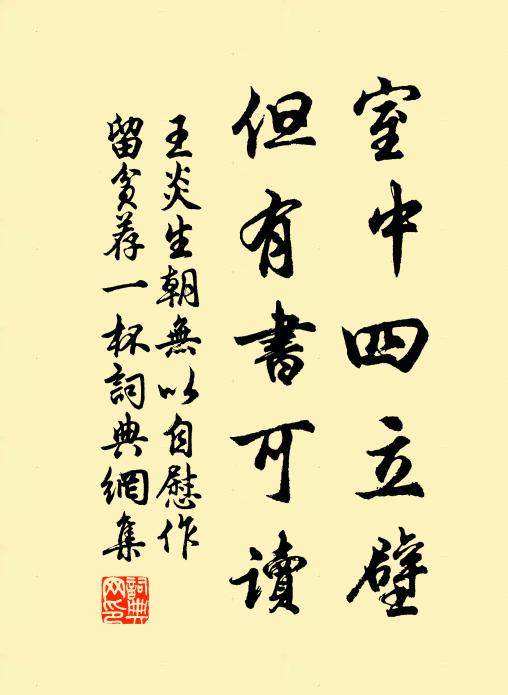 室中四立壁
但有書可讀
王炎生朝無以自慰作
留貧荐一杯詞典網集
詞典網印